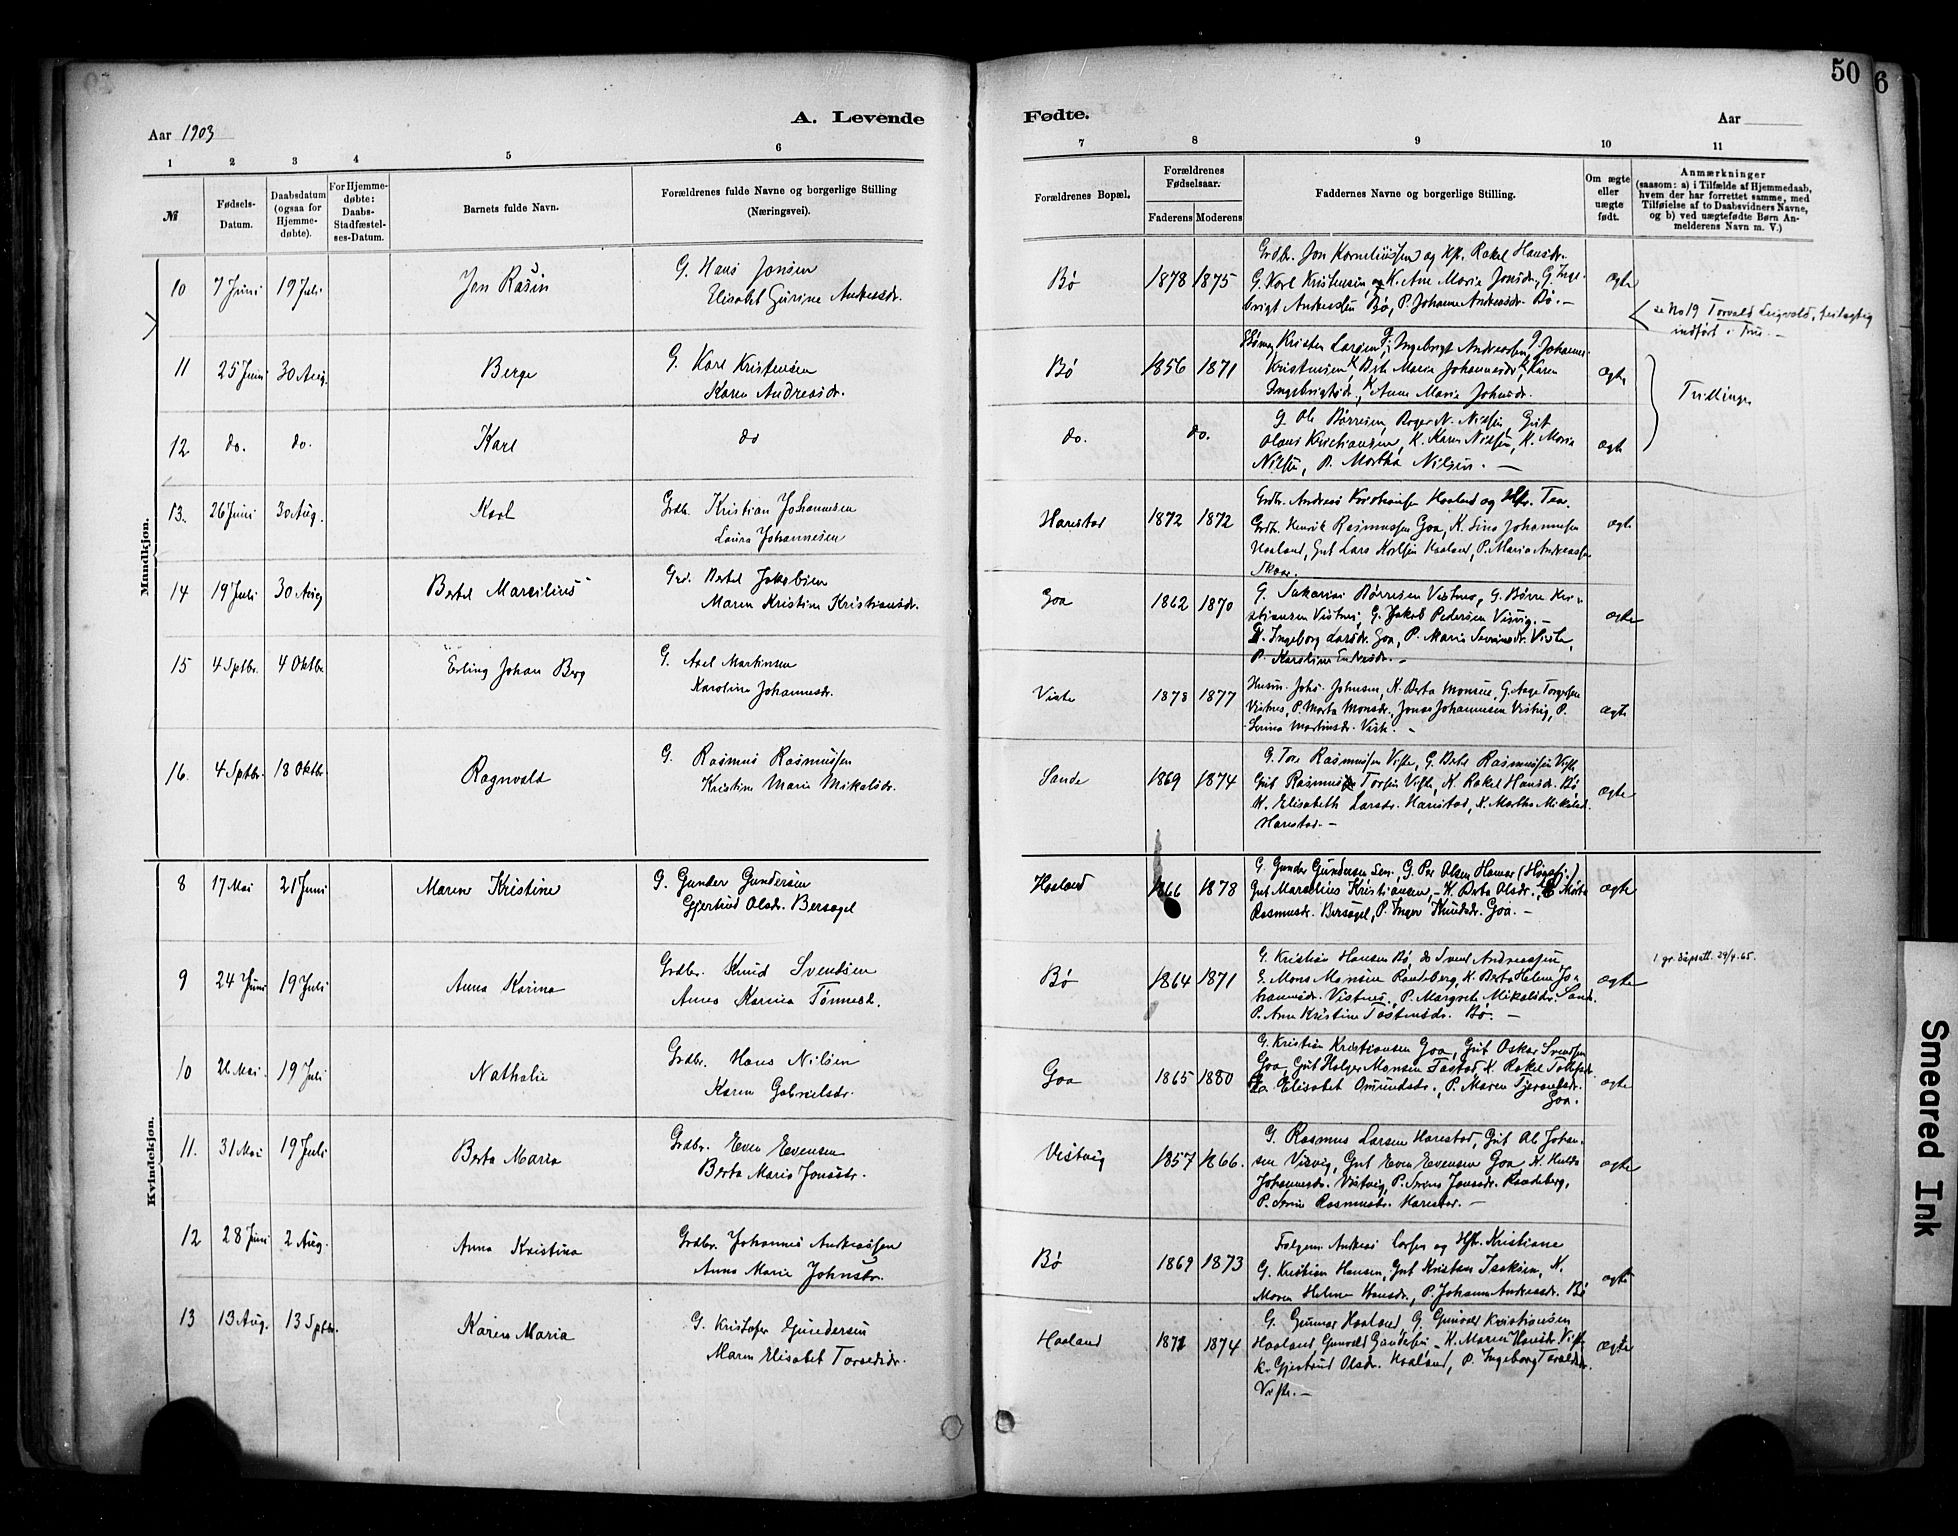 50
6
A. Levende
Fødte.
Aar 1903
Aar
1
2
3
4
5
6
7
8
9
10
11
№
Fødsels-
Datum.
Daabsdatum
(ogsaa for
Hjemme-
døbte).
For Hjemme-
døbte:
Daabs-
Stadfæstel-
ses-Datum.
Barnets fulde Navn.
Forældrenes fulde Navne og borgerlige Stilling
(Næringsvei).
Forældrenes Bopæl.
Forældrenes
Fødselsaar.
Faderens
Moderens
Faddernes Navne og borgerlige Stilling.
Om ægte
eller
uægte
født.
Anmærkninger
(saasom: a) i Tilfælde af Hjemmedaab,
hvem der har forrettet samme, med
Tilføielse af to Daabsvidners Navne,
og b) ved uægtefødte Børn An-
melderens Navn m. V.)
Mandkjøn.
10 7 Juni 19 Juli Jon Rasin
G. Hans Jonsen
Elisabet Gurine Andreasdr.
Bø 1878 1875
Grdbr. Jon Korneliussen og Hfr. Rakel Hansdr.
G. Karl Kristensen og K. Ane Marie Jonsdr., G. Inge-
brigt Andreassen Bø, P. Johanne Andreasdr. Bø. —
ægte
se No 19 Torvald Leigvald, feilagtig
indført i
11 25 Juni 30 Aug. Berge
G. Karl Kristensen
Karen Andreasdr.
Bø 1856 1871
Kristen Larsen, Ingebrigt Andreassen, Johannes
Kristensen, Berte Marie Johannesdr., Karen
Ingebrigtsdr., Anne Marie Johnsdr.
ægte
Trillinger
12 do. do. Karl
do
do. do.
G. Ole Børresen, Roger N. Nilsen, Gut
Olaus Kristiansen, K. Karen Nilsen, K. Maria
Nilsen, P. Martha Nilsen. —
ægte
13. 26 Juni 30 Aug. Karl
Grdb. Kristian Johannesen
Laura Johannesen
Harestad 1872 1872
Grdb. Andreas Haaland og Hfr. Tea.
Grdb. Henrik Rasmussen Goa, K. Sina Johannesen
Haaland, Gut Lars Karlsen Haaland, P. Maria Andreassen
Skaar.
ægte
14 19 Juli 30 Aug Bertel Marsilius
Grd. Bertel Jakobsen
Maren Kristine Kristiansdr.
Goa 1862 1870
G. Sakarias Børresen Vistnes, G. Børre Kri-
stiansen Vistnes, G. Jakob Pedersen Visvig. —
K. Ingeborg Larsdr. Goa, P. Maria Sevrinsdr. Viste,
P. Karoline Endresdr. —
ægte
15 4 Sptbr. 4 Oktbr Erling Johan Berg
G. Axel Martinsen
Karoline Johannesdr.
Viste 1878 1877
Husm. Johs. Johnsen, K. Berta Monsen, G. Aage Torgersen
Vistnes, P. Marta Monsdr., Jonas Johannesen Vistvig, P.
Serina Martinsdr. Viste. —
ægte
16. 4 Sptbr. 18 Oktbr Ragnvald
G. Rasmus Rasmussen
Kristine Marie Mikalsdr.
Sande 1869 1874
G. Tore Rasmussen Viste, G. Bertel Rasmussen Viste
Gut Rasmus Torsen Viste, K. Rakel Hansdr. Bø
K. Elisabeth Larsdr. Harestad, K. Martha Mikalsd.
Harestad. —
ægte
Kvindekjøn.
8 17 Mai 21 Juni Maren Kristine
G. Gunder Gundersen
Gjertrud Olsdr. Bersagel
Haaland 1866 1878
G. Gunder Gundersen Sen., G. Per Olsen Hamar (Høgsfj.)
Gut Marselius Kristiansen, — K. Berta Olsdr., Marta
Rasmusdr. Bersagel, P. Inger Knudsdr. Goa. —
ægte
9 24 Juni 19 Juli Anna Karina
Grdbr. Knud Svendsen
Anna Karina Tønnesd.
Bø 1864 1871
G. Kristian Hansen Bø, do Svend Andreassen
G. Mons Monsen Randeberg, K. Berta Helene Jo-
hannesdr. Vistnes, P. Margrete Mikalsdr. Sande.
P. Ane Kristine Tostensdr. Bø. —
ægte
1 gr. dåpsatt. 29/4.65.
10 26 Mai. 19 Juli Nathalie
Grdbr. Hans Nilsen
Karen Gabrielsdr.
Goa 1865 1880
G. Kristian Kristiansen Goa, Gut Oskar Svendsen
Goa, Gut Holger Monsen Tastad, K. Rakel Tollefsdr.
Goa Elisabet Omundsdr., P. Maren Tjeransdr.
Goa.
ægte
11. 31 Mai 19 Juli Berta Maria
Grdbr. Even Evensen
Berta Maria Jonasdr.
Vistvig 1857 1866.
G. Rasmus Larsen Harestad, Gut Ole Johan-
sen Visvig, Gut Even Evensen Goa K. Hulda
Johannesdr. Vistvig, P. Jonasdr. Randeberg,
P. Serine Rasmusdr. Harestad. —
ægte
12 28 Juni 2 Aug. Anna Kristina
Grdbr. Johannes Andreassen
Anna Marie Johnsdr.
Bø 1869 1873
Andreas Larsen og Hfr. Kristiane
G. Kristian Hansen, Gut Kristian Isaksen, K.
Maren Helene Hansdr., P. Johanne Andreasdr. Bø
ægte
13 13 Aug. 13 Sptbr. Karen Maria
G. Kristofer Gundersen
Maren Elisabet Torsedsdr.
Haaland 1871 1874
G. Gunnar Haaland, G. Gunvald Kristiansen
Haaland, Gunvald Gundersen — K. Maren Hansdr. Viste
K. Gjertrud Olsdr. Haaland, P. Ingeborg Toraldsdr.
Viste. —
ægte
Smeared Ink